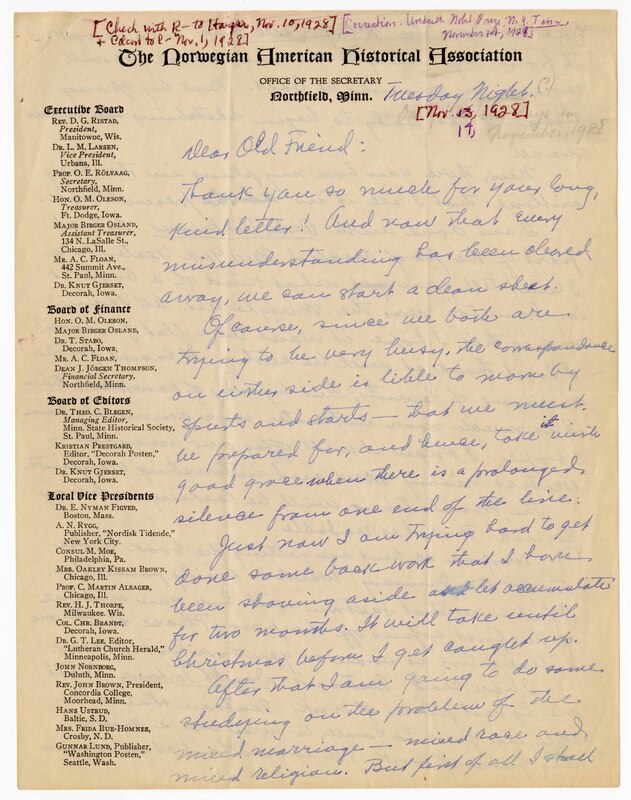 [Check with R - to Harper, Nov. 10, 1928]
+ Colcord to R - Nov. 1, 1928]
[Correction: Undset's Nobel Prize, N.Y. Times
November 14, 1928]
The Norwegian American Historical Association
OFFICE OF THE SECRETARY
Northfield, Minn.
Tuesday Night.
[Nov. 13, 1928]
14,
November, 1928
Executive Board
REV. D. G. RISTAD,
President,
Manitowoc, Wis.
DR. L. M. LARSEN,
Vice President,
Urbana, Ill.
PROF. O. E. RÖLVAAG,
Secretary,
Northfield, Minn.
HON. O. M. OLESON,
Treasurer,
Ft. Dodge, Iowa.
MAJOR BIRGER OSLAND,
Assistant Treasurer,
134 N. LaSalle St.,
Chicago, Ill.
MR. A. C. FLOAN,
442 Summit Ave.,
St. Paul, Minn.
DR. KNUT GJERSET,
Decorah, Iowa.
Board of Finance
HON. O. M. OLESON,
MAJOR BIRGER OSLAND,
DR. T. STABO,
Decorah, Iowa.
MR. A. C. FLOAN,
DEAN J. JÖRGEN THOMPSON,
Financial Secretary,
Northfield, Minn.
Board of Editors
DR. THEO. C. BLEGEN,
Managing Editor,
Minn. State Historical Society,
St. Paul, Minn.
KRISTIAN PRESTGARD,
Editor, "Decorah Posten,"
Decorah, Iowa.
DR. KNUT GJERSET,
Decorah, Iowa.
Local Vice Presidents
DR. E. NYMAN FIGVED,
Boston, Mass.
A. N. RYGG,
Publisher, "Nordisk Tidende,"
New York City.
CONSUL M. MOE,
Philadelphia, Pa.
MRS. OAKLEY KISSAM BROWN,
Chicago, Ill.
PROF. C. MARTIN ALSAGER,
Chicago, Ill.
REV. H. J. THORPE,
Milwaukee. Wis.
COL. CHR. BRANDT,
Decorah, Iowa.
DR. G. T. LEE, Editor,
"Lutheran Church Herald,"
Minneapolis, Minn.
JOHN NORNBORG,
Duluth, Minn.
REV. JOHN BROWN, President,
Concordia College,
Moorhead, Minn.
HANS USTRUD,
Baltic, S. D.
MRS. FRIDA BUE-HOMNES,
Crosby, N. D.
GUNNAR LUND, Publisher,
"Washington Posten,"
Seattle, Wash.
Dear Old Friend:
Thank you so much for your long,
kind letter! And now that every
misunderstanding has been cleared
away, we can start a clean sheet.
Of course, since we both are
trying to be very busy, the correspondance
on either side is lible to move by
spurts and starts — that we must
be prepared for, and hence, take it with
good grace when there is a prolonged
silence from one end of the line.
Just now I am trying hard to get
done some back work that I have
been shoving aside and let accumulate
for two months. It will take until
Christmas before I get caught up.
After that I am going to do some
studying on the problem of the
mixed marriage — mixed race and
mixed religion. But first of all I shall